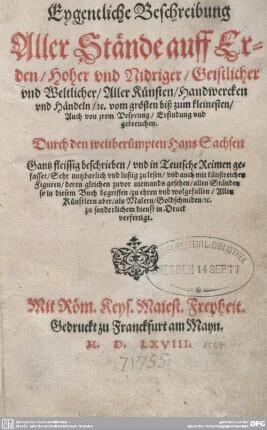 Eygentliche Beschreibung
Aller Stände auff Er-
den / Hoher vnd Nidriger / Geistlicher
vnd Weltlicher / Aller Künsten / Handwercken
vnd Händeln / ꝛc. vom grösten biß zum kleinesten /
Auch von jrem Vrsprung / Erfindung vnd
gebreuchen.
Durch den weitberümpten Hans Sachsen
Gantz fleissig beschrieben / vnd in Teutsche Reimen ge-
fasset / Sehr nutzbarlich vnd lustig zu lesen / vnd auch mit künstreichen
Figuren / deren gleichen zuvor niemands gesehen / allen Ständen
so in diesem Buch begriffen / zu ehren vnd wolgefallen / Allen
Künstlern aber / als Malern / Goldschmiden / ꝛc.
zu sonderlichem dienst in Druck
verfertigt.
BIBLIOTHEK
DRESDEN 14 SEP
Mit Röm. Keys. Maiest. Freyheit.
Gedruckt zu Franckfurt am Mayn.
M. D. LXVIII.